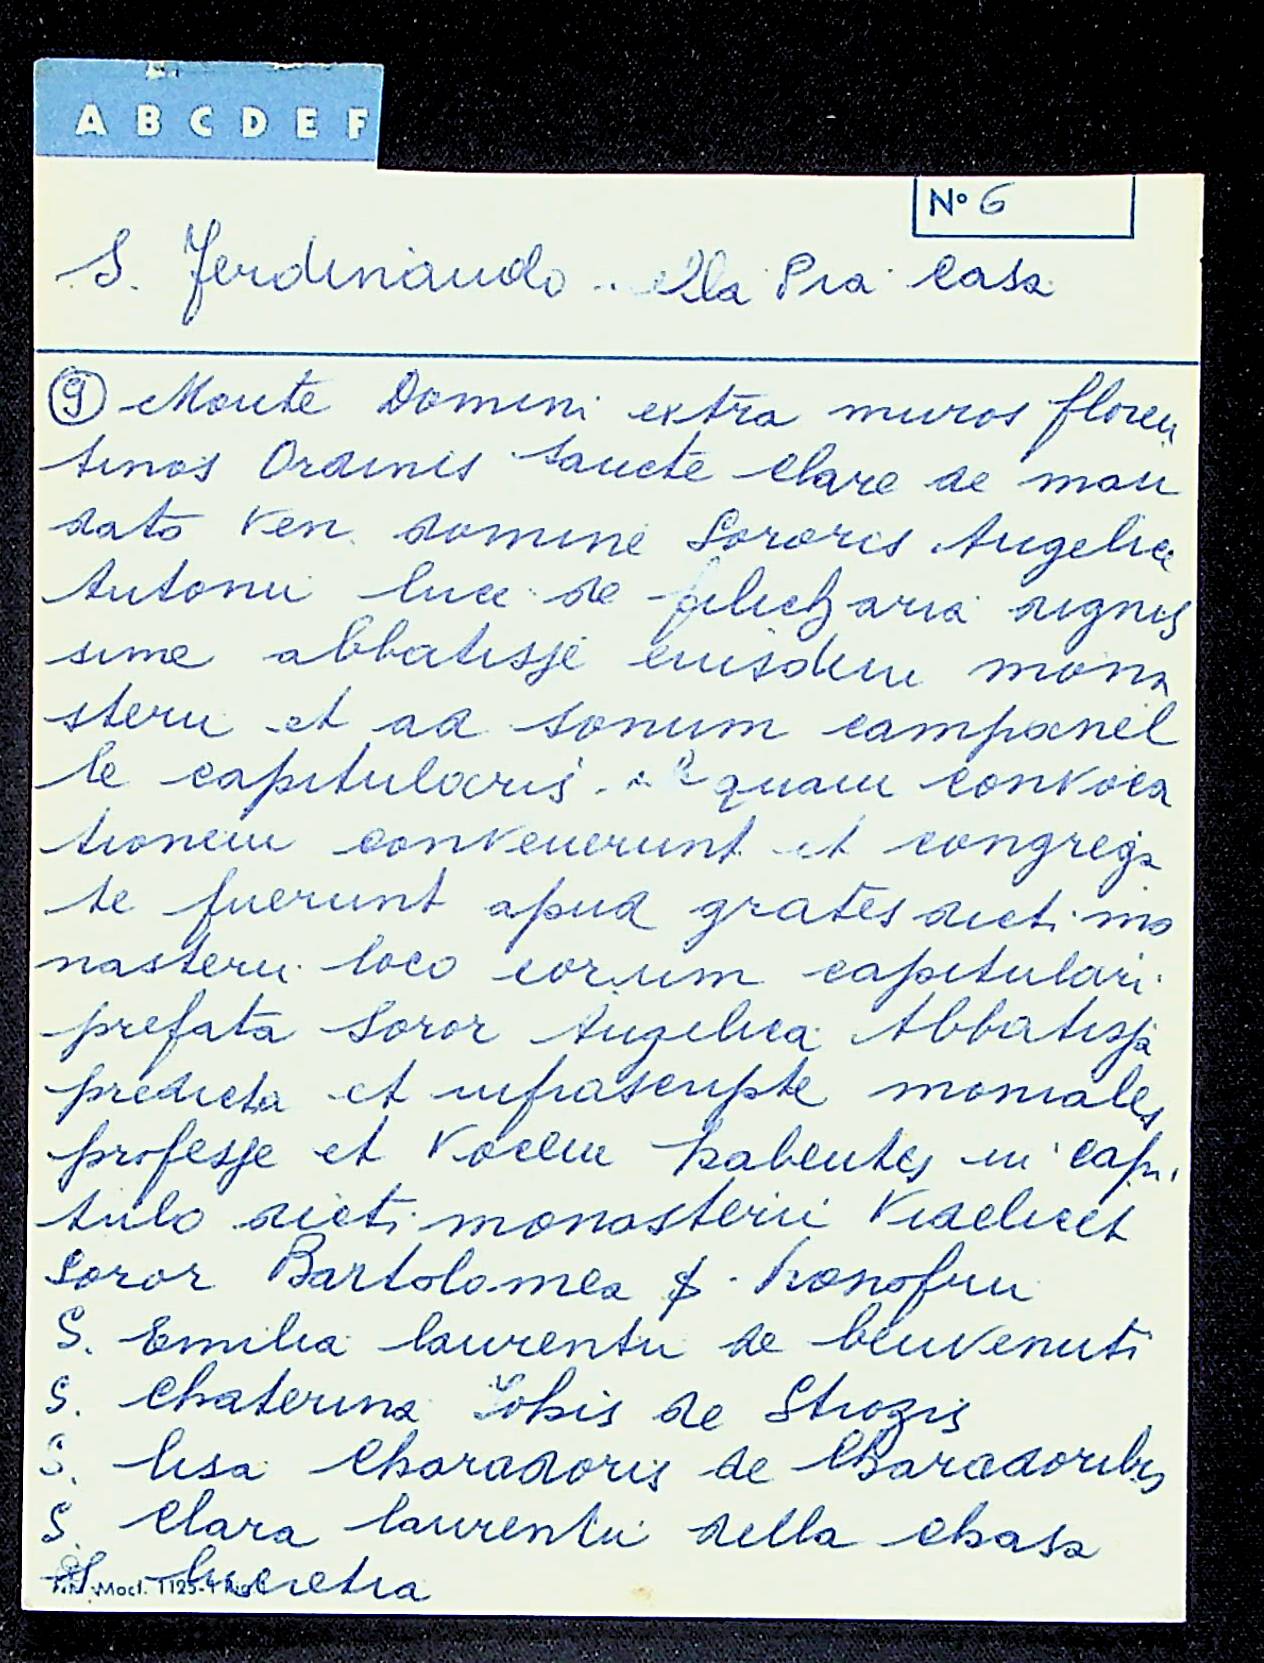 A B C D E F
Nº 6
S. Ferdinando .. ella Pia Casa
⑨ Monte Domini extra muros floren
tinos Ordinis Sancte Clare de man
dato Ven. domine Sororis Angelice
Antonii luce de filicharia dignis
sime abbatisse euisdem mona
sterii et ad sonum campanel
le capitularis. quam convoca
tionem convenerunt et congrega
te fuerunt apud grates dicti mo
nasterii loco eorum capitulari
prefata Soror Angelica Abbatissa
predicta et infrascripte moniales
professe et Vocem habentes in capi
tulo dicti monasterii Videlicet
Soror Bartolomea honofrii
S. Emilia laurentii de benvenuti
S. Chaterina de Strozis
S. lisa Charadoris de Charadoribus
S. Clara laurentii della Chasa
S. lucretia
Mod. 1125-4